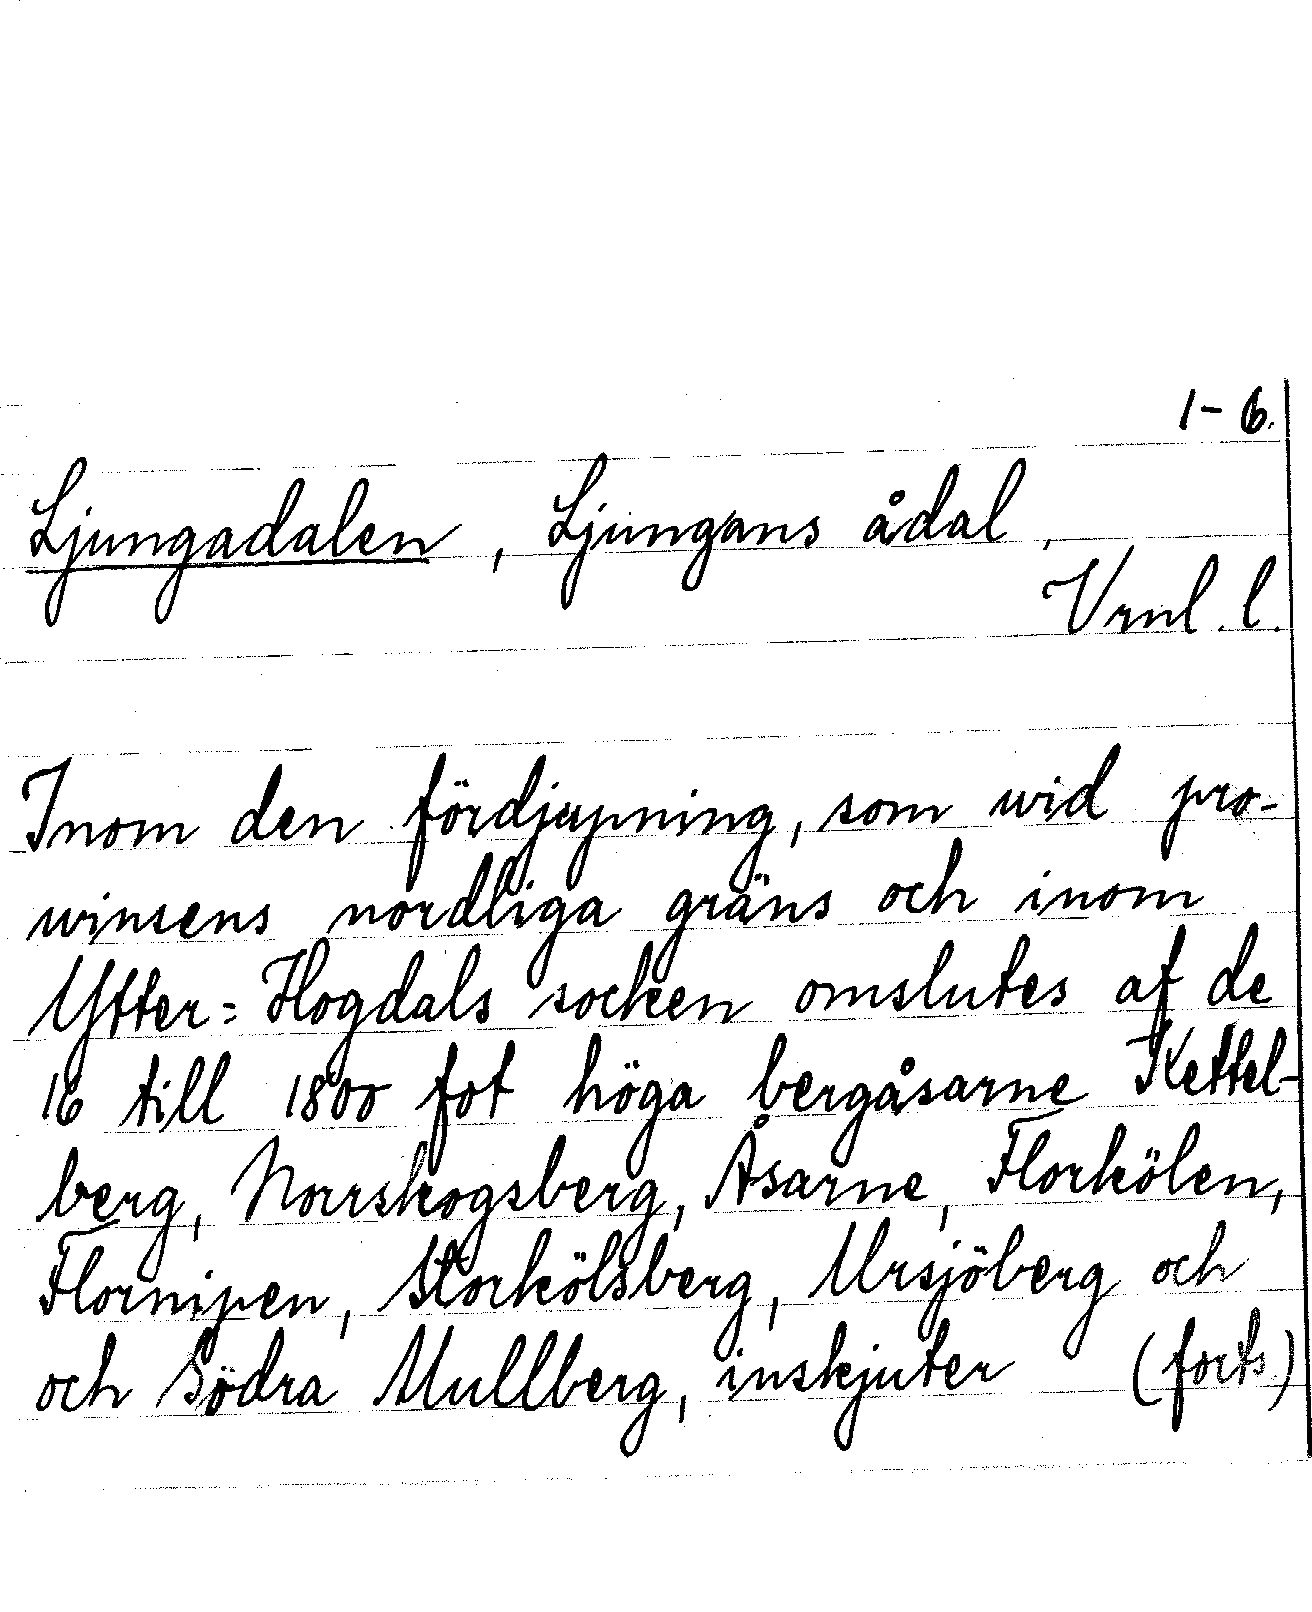 1-6.
Ljungadalen, Ljungans ådal,
Vrml. l.
Inom den fördjupning, som wid pro-
winsens nordliga gräns och inom
Ytter=Hogdals socken omslutes af de
16 till 1800 fot höga bergåsarne Kettel-
berg, Norrskogsberg, Åsarne, Florkölen,
Flornipen, Storkölsberg, Ursjöberg och
och Södra Mullberg, inskjuter (forts)